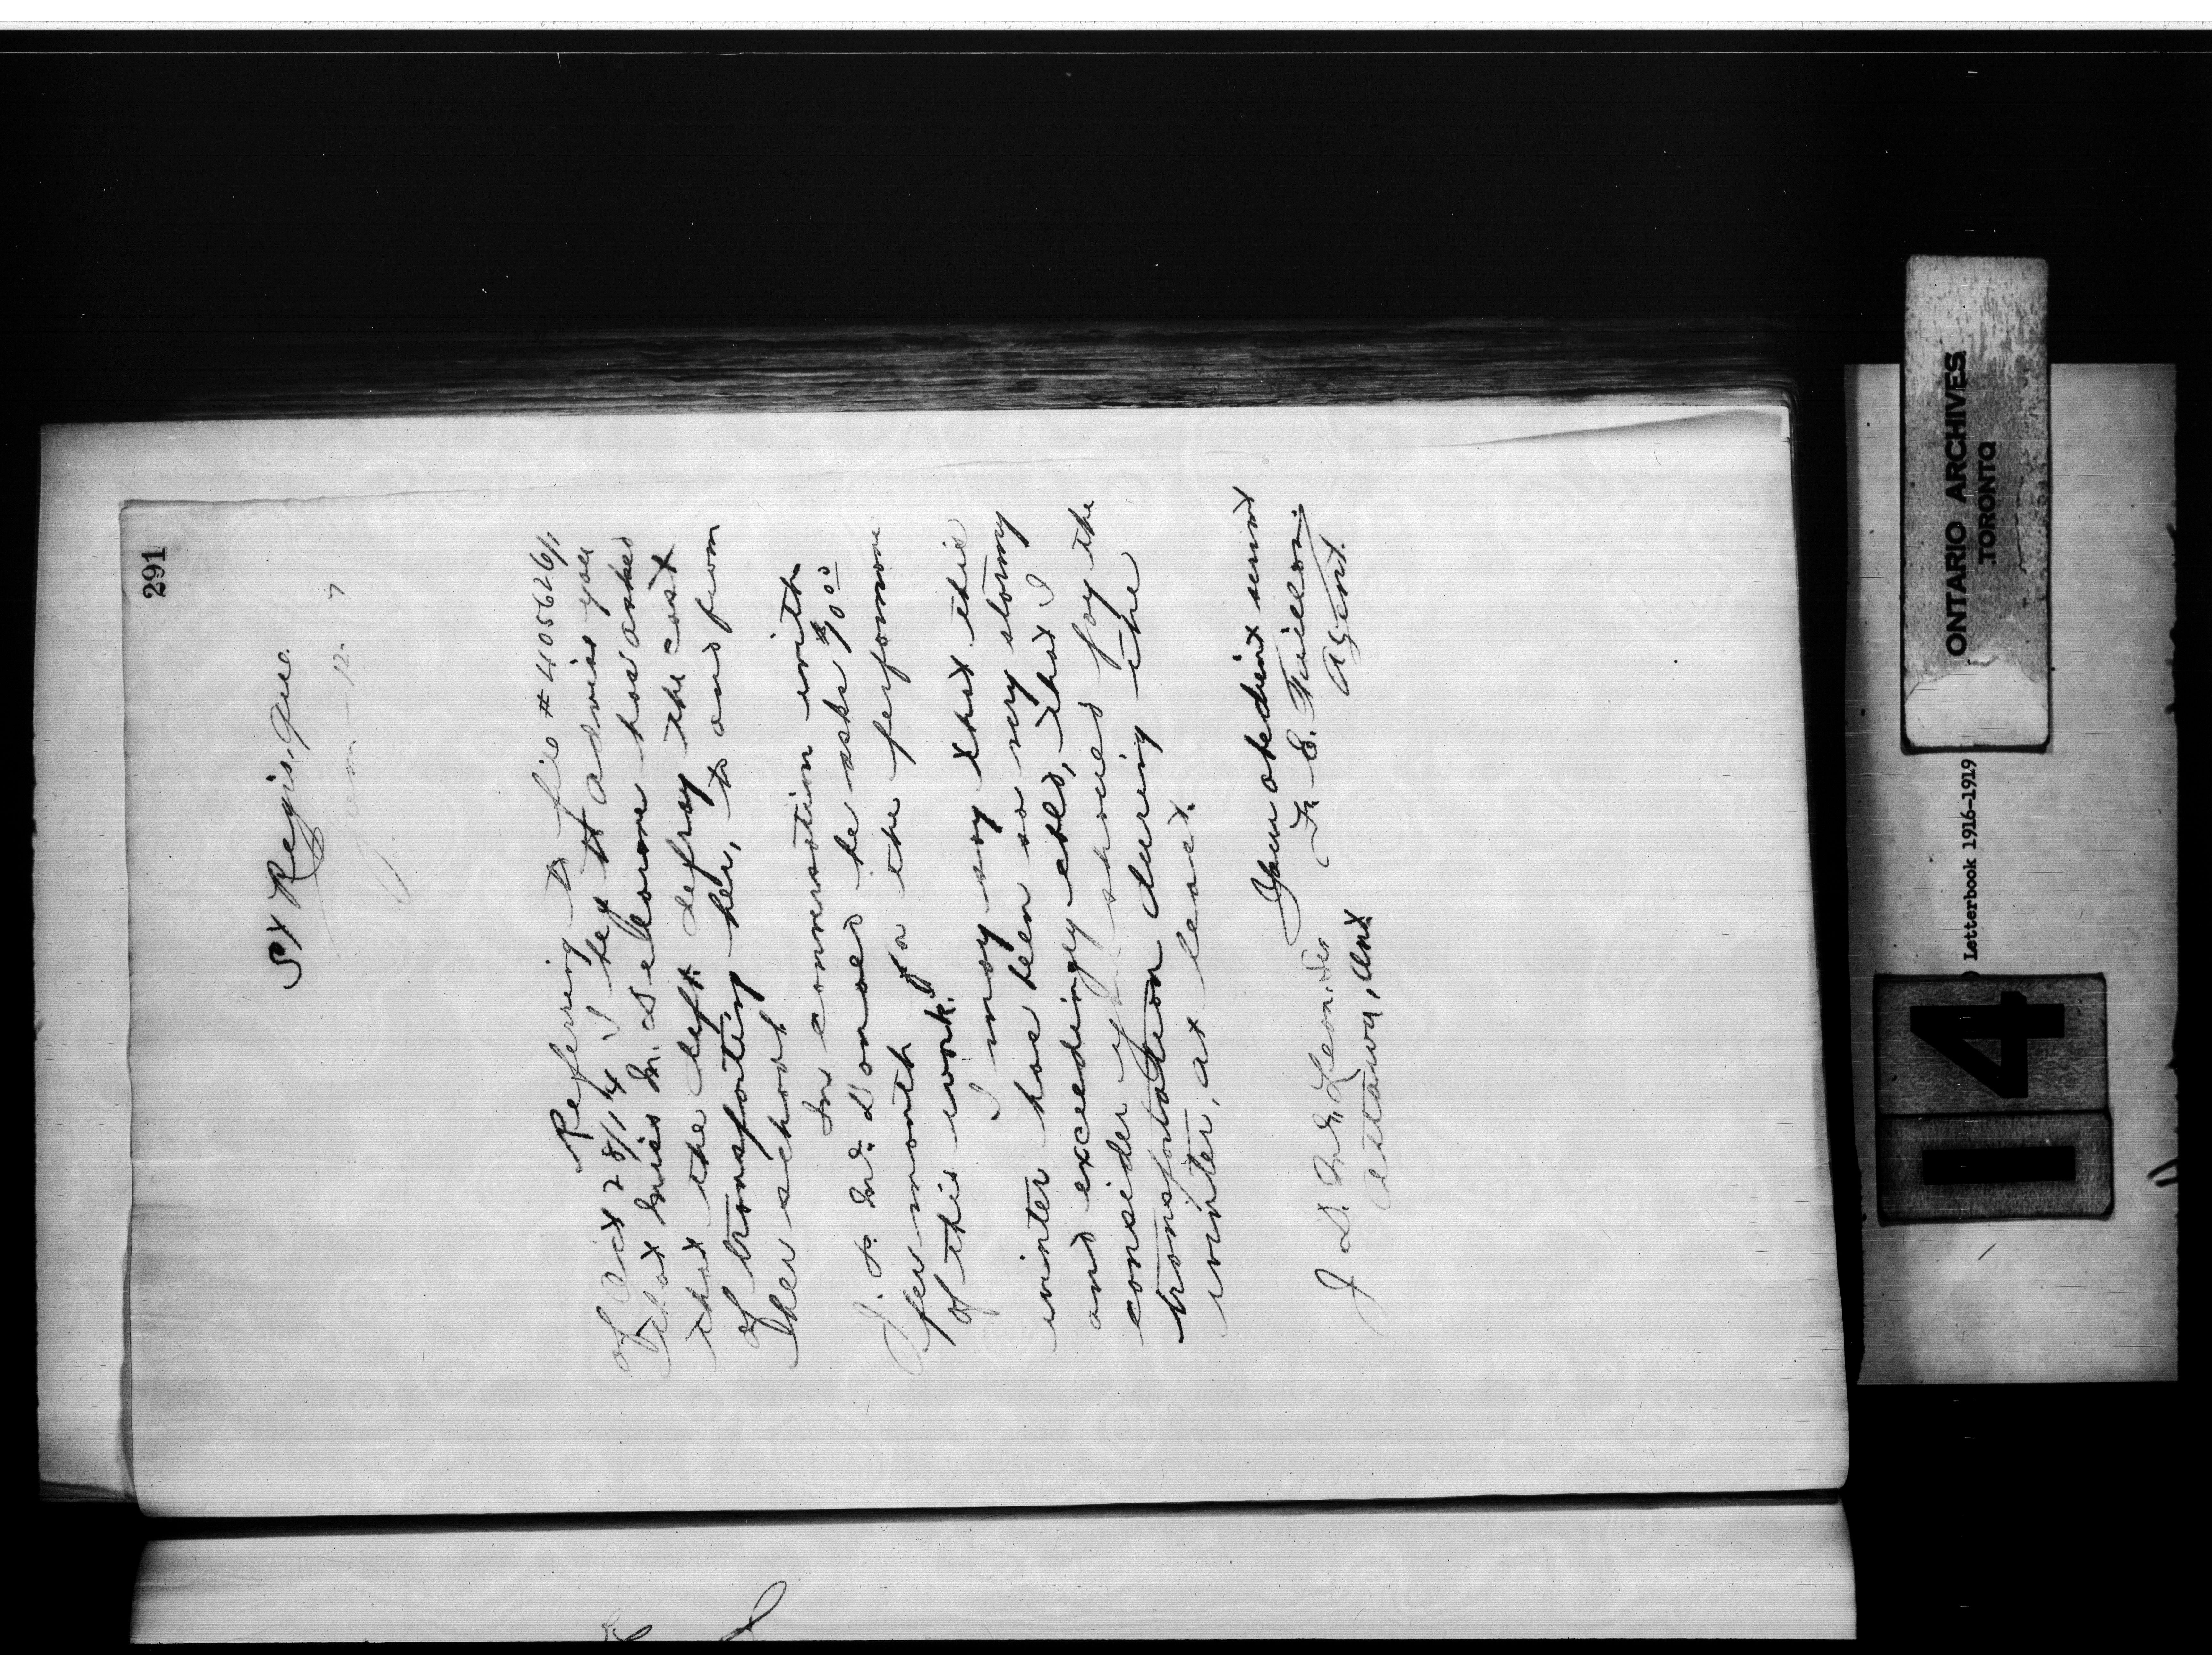 291
St Regis, Que.
Jan - 12. 7
Referring to file # 405626/1
of Oct 28/14 I beg to advise you
that Miss M. Delorme has asked
that the Dept. defray the cost
of transporting her, to and from
her school
In conversation with
J. P. McDonald he asks $90.00
per month for the performance
of this work.
I may say that this
winter has been so very stormy
and exceedingly cold, that I
consider you should pay the
transportation during the
winter, at least.
Your obedient servant
F. E. Taillon
Agent.
J. D. McLean, Sec
Ottawa, Ont.
ONTARIO ARCHIVES
TORONTO
Letterbook 1916-1919
14